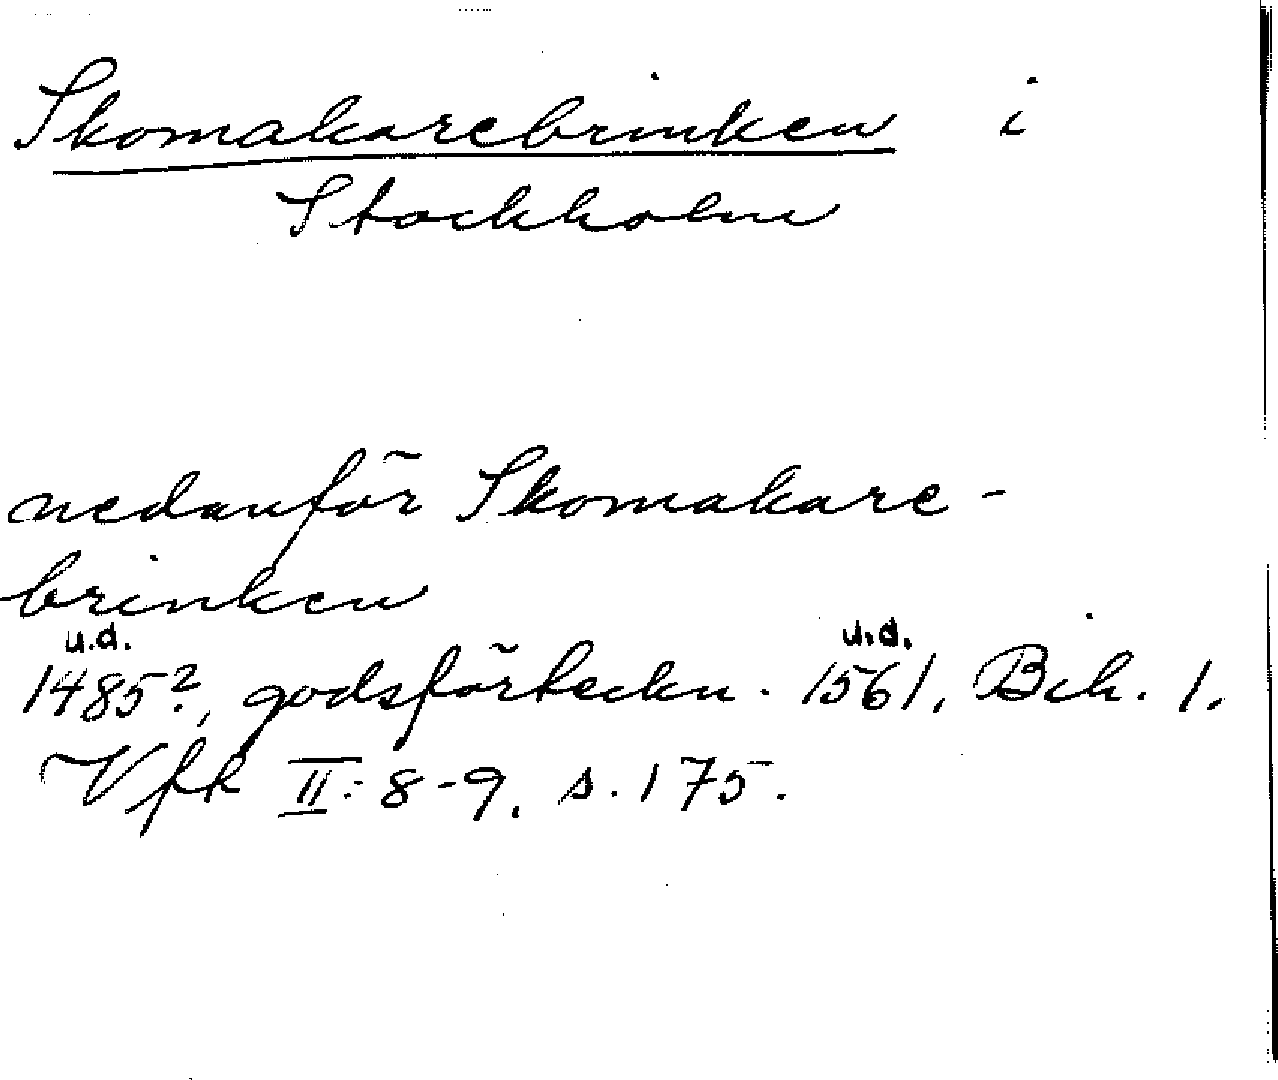 Skomakarebrinken i
Stockholm
nedanför Skomakare-
brinken
u.d. u.d.
1485?, godsförteckn. 1561, Bih. 1.
Vfk II: 8-9, s. 175.